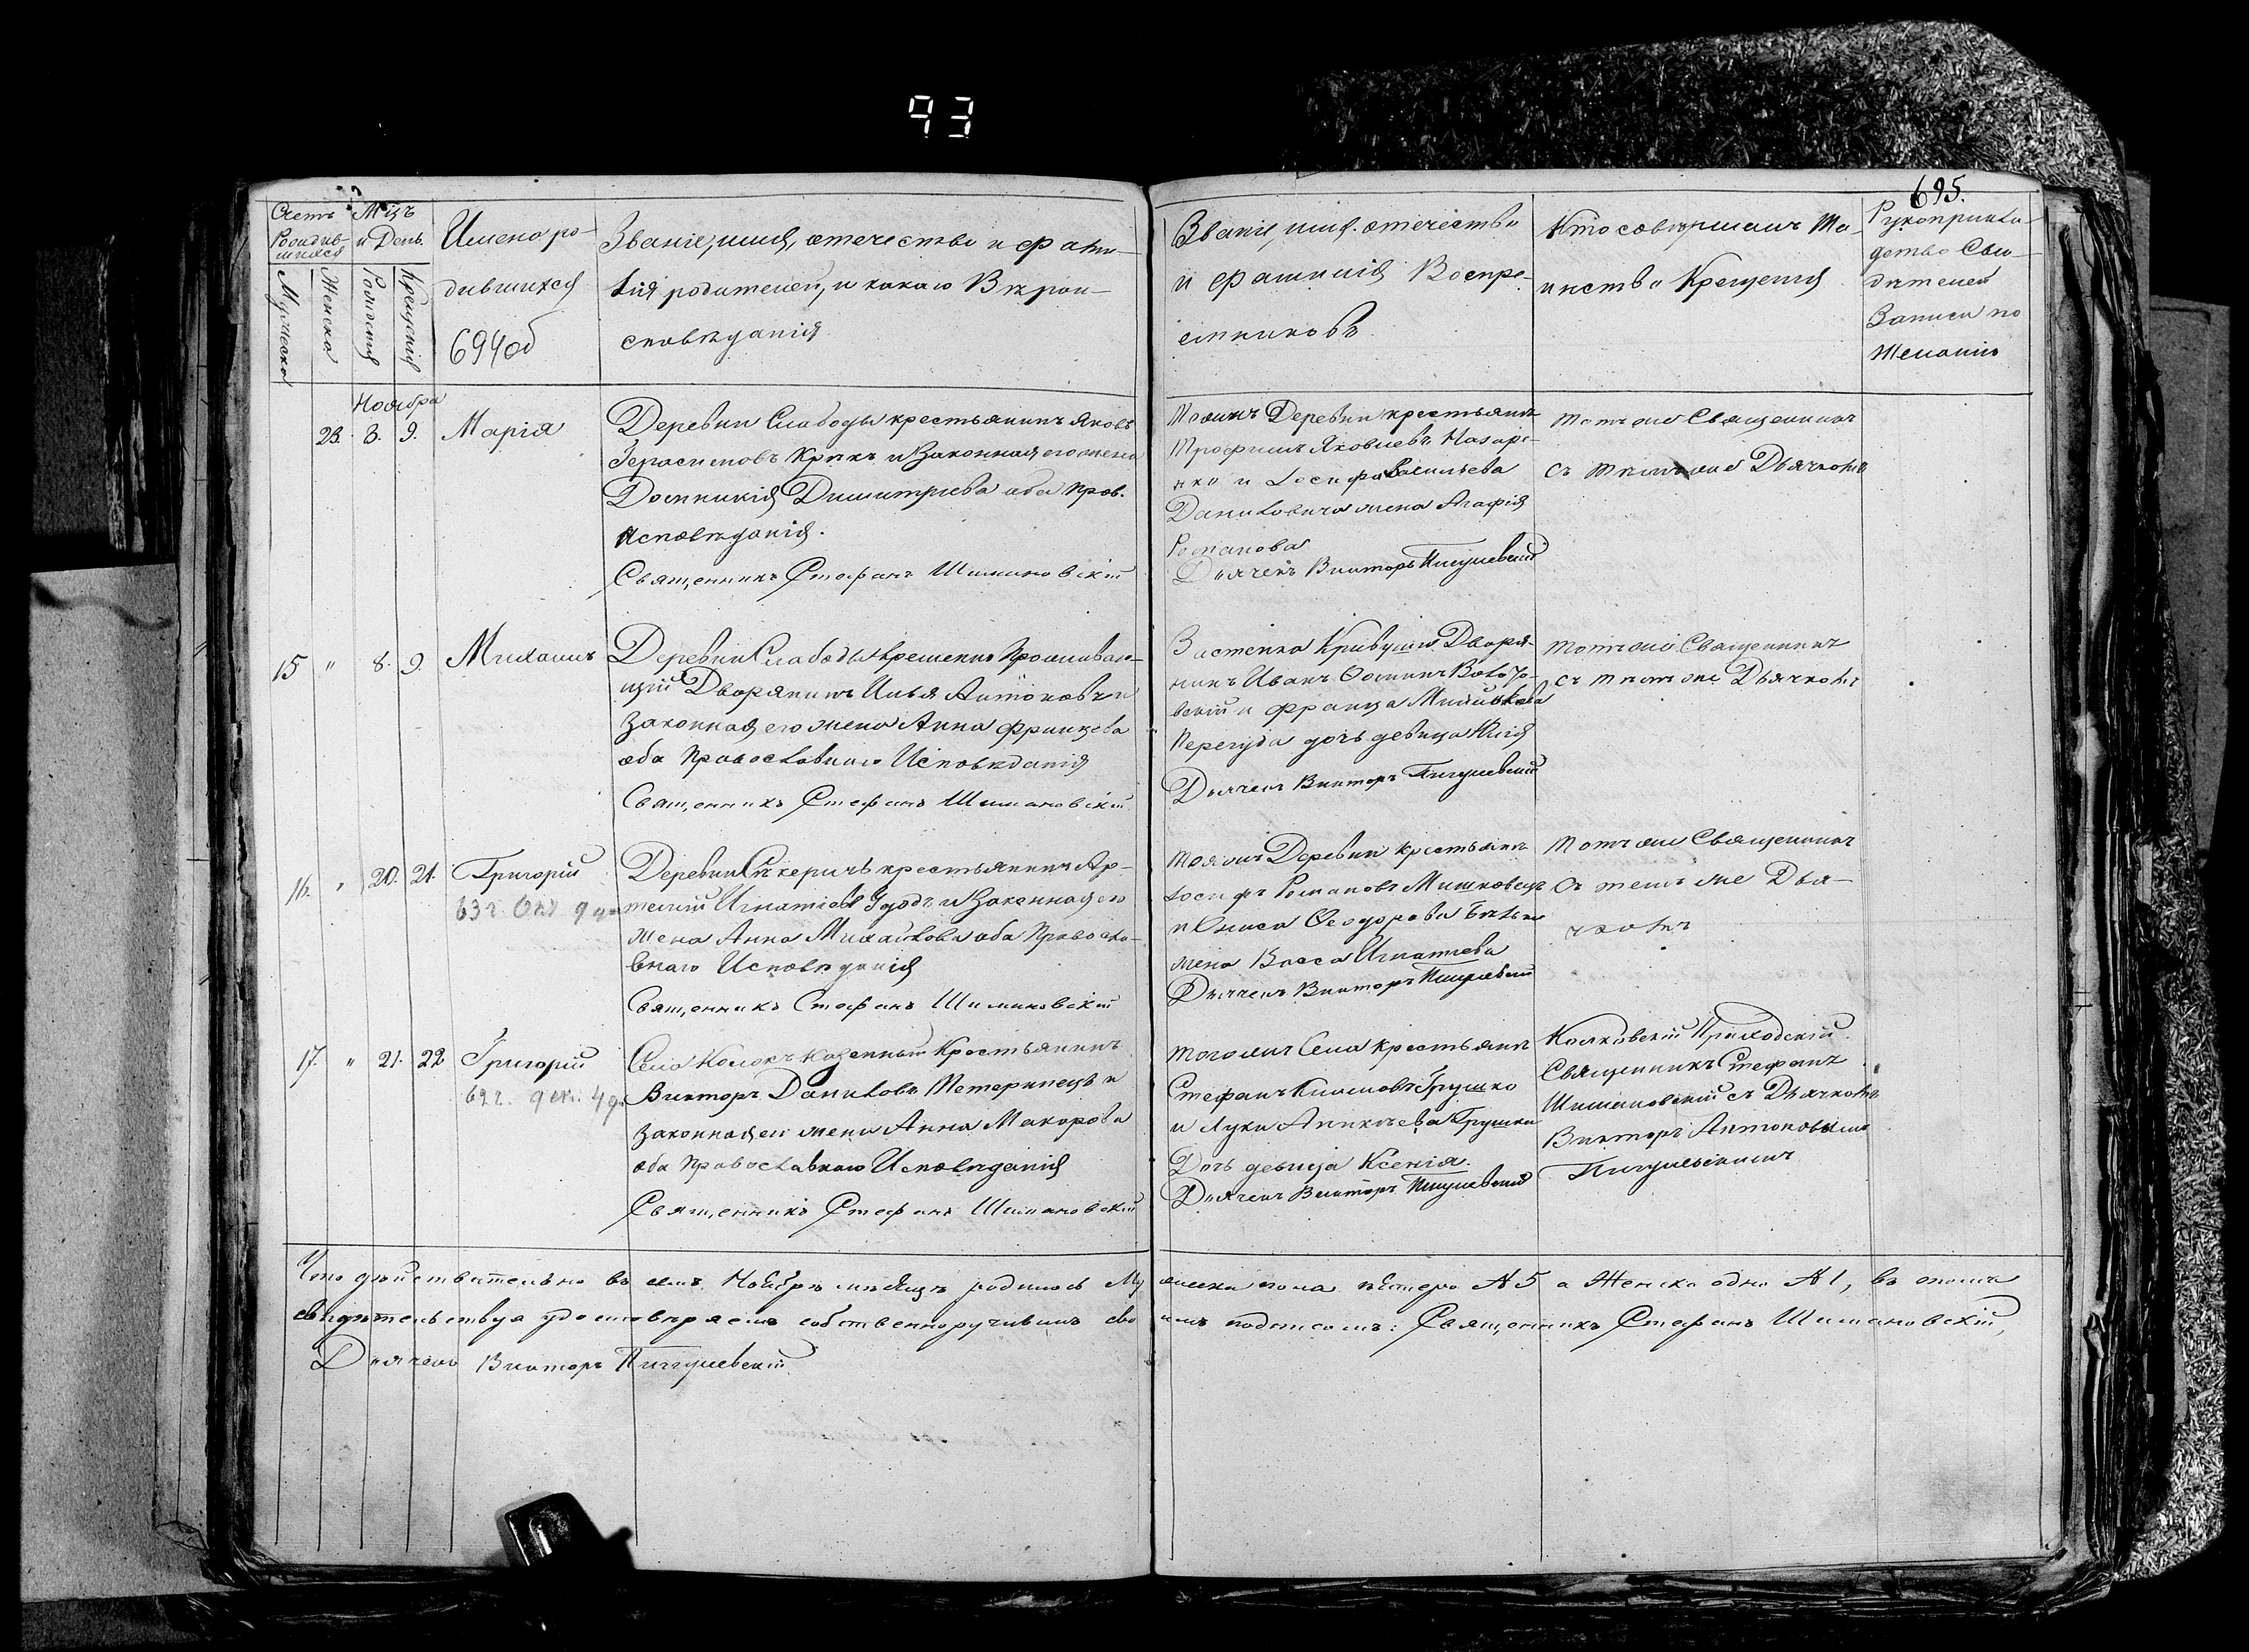 93
695.
Счетъ
Родив-
шихся
Мужеска
Женска
Мцъ
и День.
Рожденія
Крещенія
Имена ро-
дившихся
694об
Званіе, имя, отечество и фами-
лія родителей, и какого Вѣрои-
сповѣданія
Званіе, имя, отечество
и фамилія Воспре-
емниковъ
Кто совершалъ Та-
инство Крещенія
Рукоприкла-
детво Сви-
дѣтелей
Записи по
Желанію
Ноября
23. 8. 9. Марія
Деревни Слабоды крестьянинъ Яковъ
Герасимовъ и Законная его жена
Домникія Димитріева оба Прав.
Исповѣданія.
Священникъ Стефанъ Шимановскій
Деревни крестьянинъ
Трофимъ Яковлевъ Назаре-
нко и Іосифа Васильева
Даниловича жена Агафія
Романова
Дьячекъ Викторъ Пигулевскій
тотъ же Священникъ
съ тѣмъ же Дьячкомъ
15 " 8. 9. Михаилъ
Деревни Слабоды временно проживаю-
щій Дворянинъ Илья Антоновъ и
Законная его жена Анна Францева
оба Православнаго Исповѣданія
Священникъ Стефанъ Шимановскій
Застенка Дворя-
нинъ Иванъ Ѳоминъ
и Франца
Перегуда дочь девица Юлія
Дьячекъ Викторъ Пигулевскій
тотъ же Священникъ
съ тѣмъ же Дьячкомъ
16. " 20. 21. Григорій
63 г. Окт 9 дня
Деревни крестьянинъ Ар-
темій Игнатіевъ Удодъ и Законная его
жена Анна Михайлова оба Правосла-
внаго Исповѣданія
Священникъ Стефанъ Шимановскій
тоя жъ Деревни крестьянинъ
Іосифъ Романовъ Мишковецъ
и Ѳеодорова
жена Васса Игнатіева
Дьячекъ Викторъ Пигулевскій
тотъ же Священникъ
Съ темъ же Дья-
чкомъ
17. " 21. 22 Григорій
62 г. дек. 4 дн
Села Колокъ Казенный Крестьянинъ
Викторъ Даниловъ Петеринецъ и
Законная его жена Анна Макарова
оба Православнаго Исповѣданія
Священникъ Стефанъ Шимановскій
того жъ Села Крестьянинъ
Стефанъ Климовъ Грушко
и Луки Аникіева Грушки
Дочь девица Ксенія.
Дьячекъ Викторъ Пигулевскій
Приходскій
Священникъ Стефанъ
Шимановскій съ Дьячкомъ
Викторъ Антоновымъ
Пигулевскимъ
Что дѣйствительно въ семъ Ноябрѣ мѣсяцѣ родилось Мужеска пола пятеро № 5 а Женска одно № 1, въ томъ
свидѣтельствуя удостовѣряемъ собственноручнымъ своимъ подписомъ: Священникъ Стефанъ Шимановскій,
Дьячекъ Викторъ Пигулевскій.